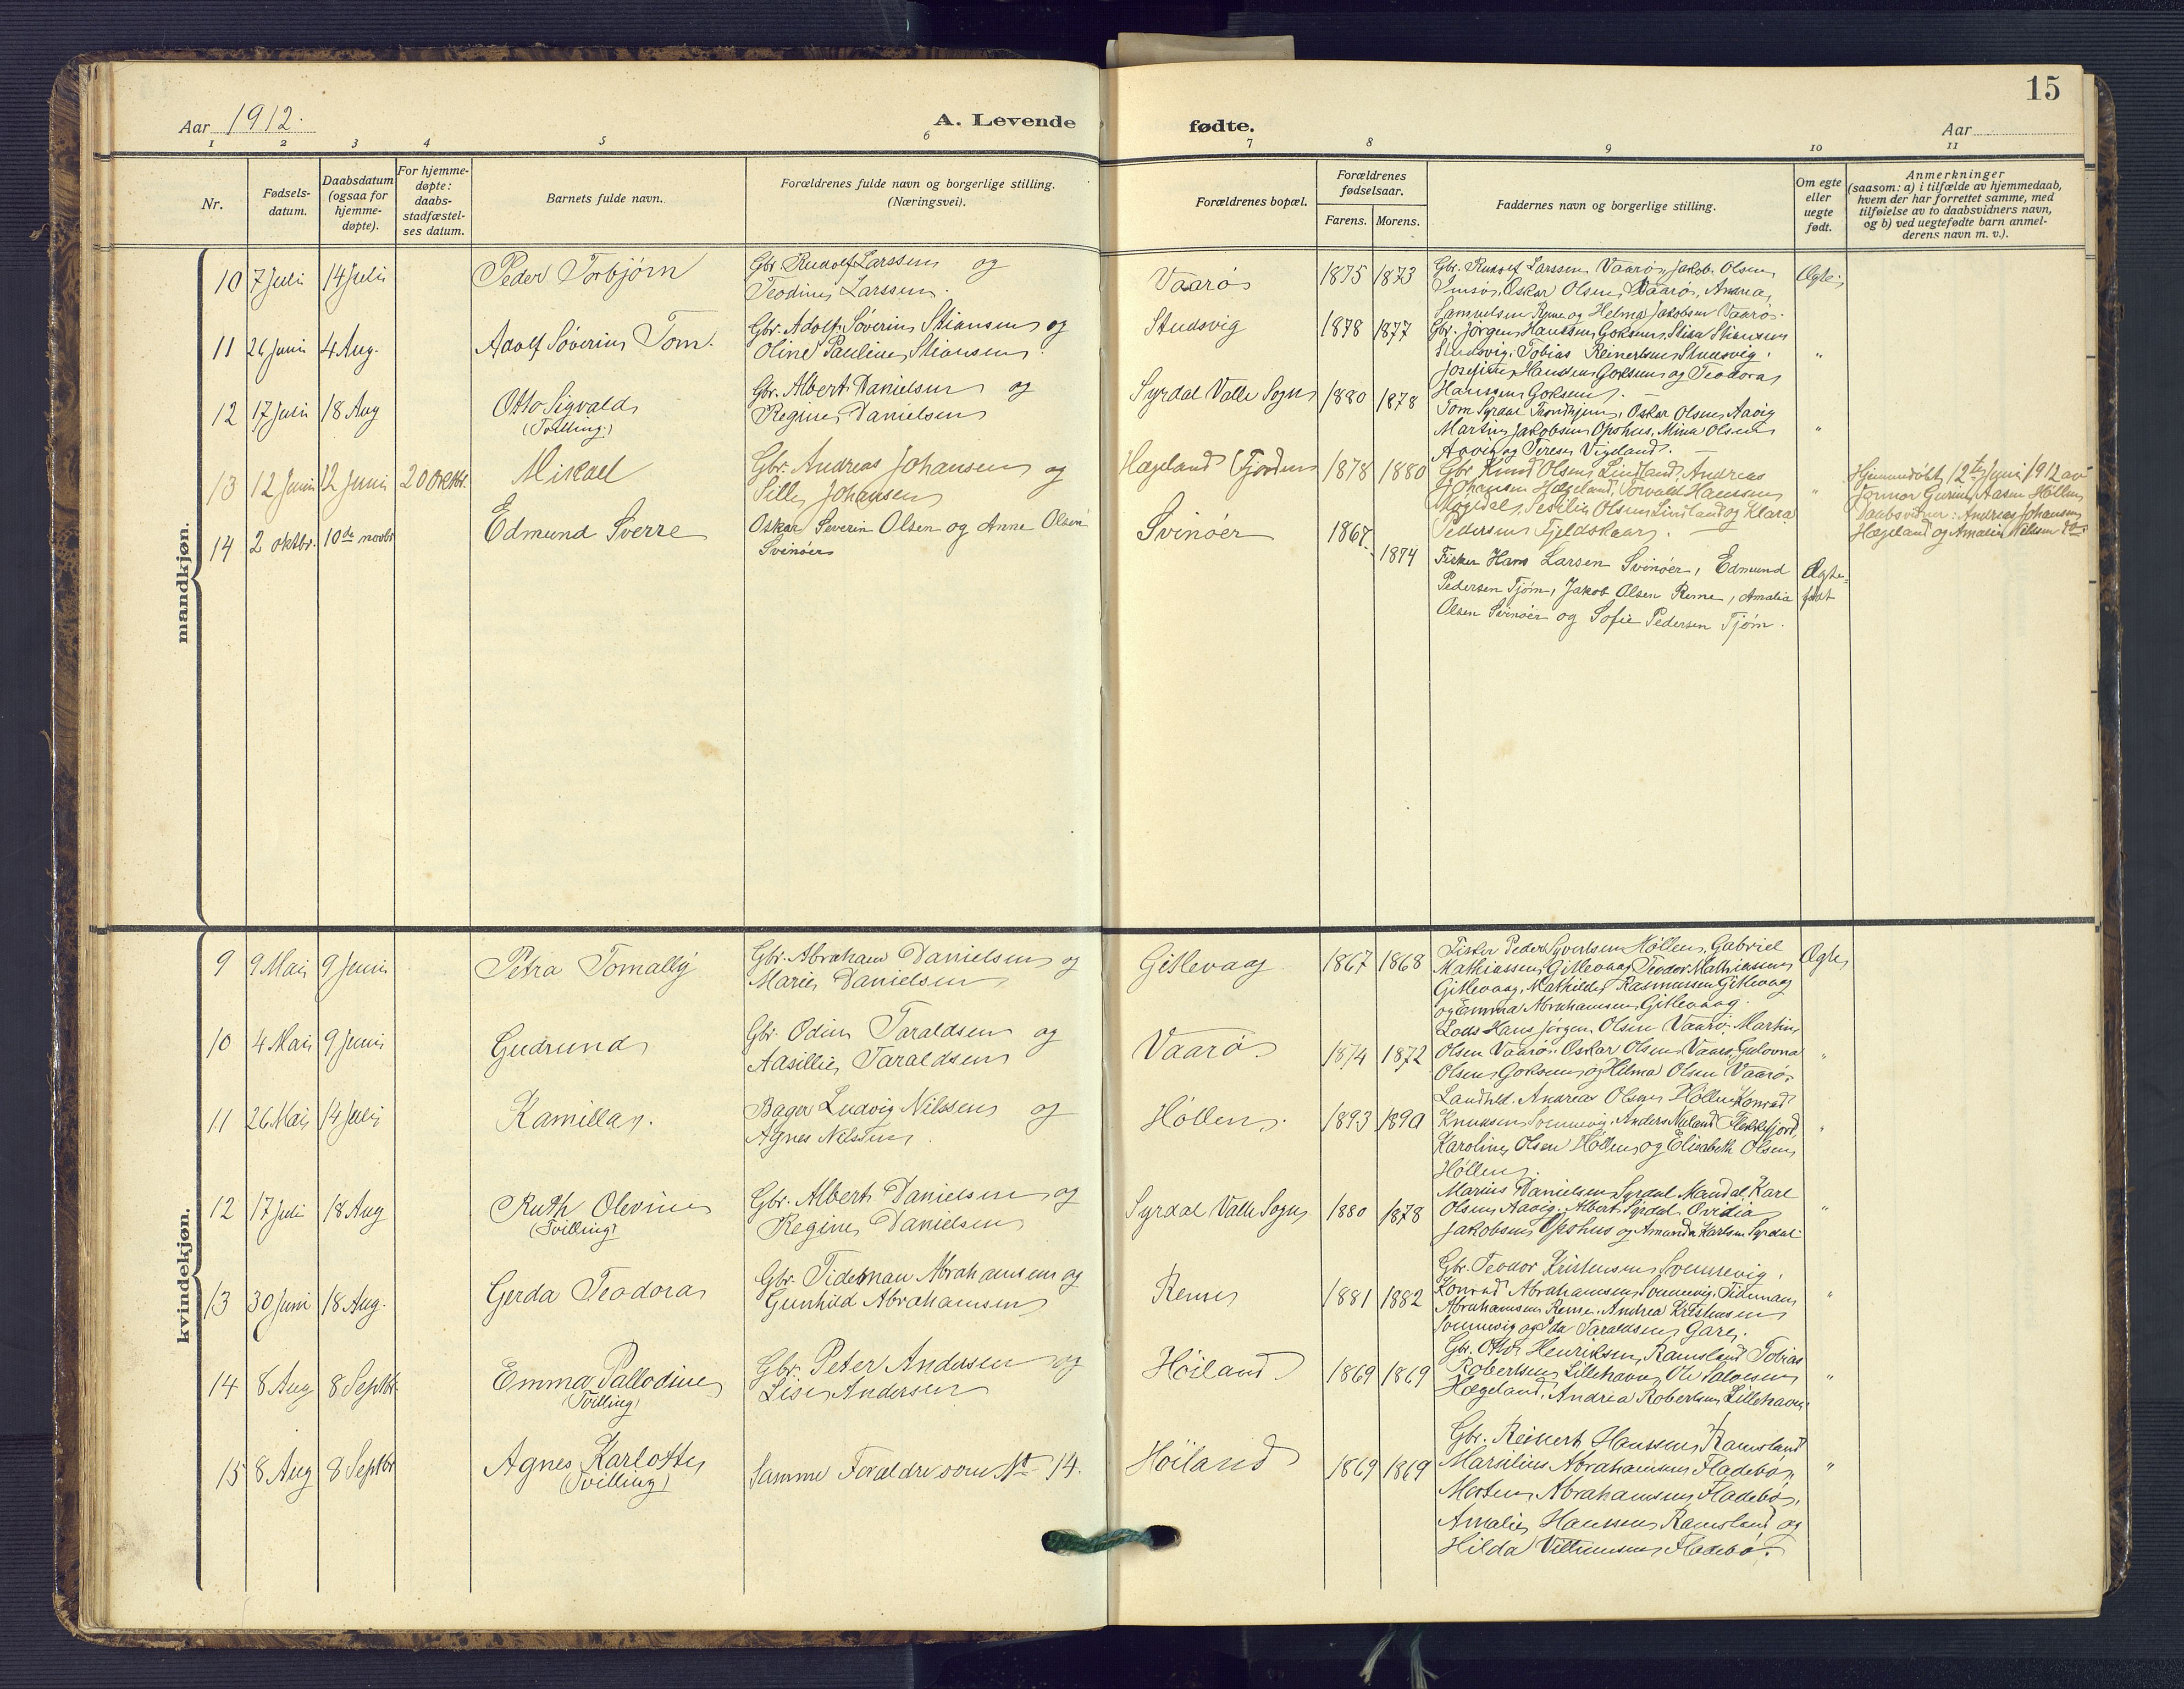 15
Aar 1912.
A. Levende fødte.
Aar
1 2 3 4 5 6 7 8 9 10 11
Nr.
Fødsels-
datum.
Daabsdatum
(ogsaa for
hjemme-
døpte).
For hjemme-
døpte:
daabs-
stadfæstel-
ses datum.
Barnets fulde navn.
Forældrenes fulde navn og borgerlige stilling.
(Næringsvei).
Forældrenes bopæl.
Forældrenes
fødselsaar.
Farens. Morens.
Faddernes navn og borgerlige stilling.
Om egte
eller
uegte
født.
Anmerkninger
(saasom: a) i tilfælde av hjemmedaab,
hvem der har forrettet samme, med
tilføielse av to daabsvidners navn,
og b) ved uegtefødte barn anmel-
derens navn m. v.).
mandkjøn.
10 7 Juli 14 Juli Peder Torbjørn
Gbr. Rudolf Larssen og
Teodine Larssen.
Vaarø 1875 1873
Gbr. Rudolf Larssen Vaarø, Jakob Olsen
Imsø, Oskar Olsen Vaarø, Andrea
Samuelsen Reme og Helma Jakobsen Vaarø.
Ægte
11 26 Juni 4 Aug. Adolf Søverin Tom.
Gbr. Adolf Søverin Stiansen og
Oline Pauline Stiansen.
Studsvig 1878 1877
Gbr. Jørgen Hanssen Goksem, Stian Stiansen
Studsvig, Tobias Reinertsen Studsvig,
Josefine Hanssen Goksem og Teodora
Hanssen Goksem.
"
12 17 Juli 18 Aug Otto Sigvald
(Tvilling)
Gbr. Albert Danielsen og
Regine Danielsen
Syrdal Valle Sogn 1880 1878
Tom Syrdal Trondhjem, Oskar Olsen Aavig
Martin Jakobsen Opshus, Mina Olsen
Aavig og Terese Vigeland.
"
13 12 Juni 12 Juni 20 Oktbr. Mikael
Gbr. Andreas Johansen og
Silly Johansen
Hægeland Fjorden 1878 1880
Gbr Knud Olsen Lindland, Andreas
Johansen Hægeland, Torvald Hanssen
Møgedal, Sesilie Olsen Lindland og Klara
Pedersen Fjeldskaar.
"
Hjemmedøbt 12te Juni 1912 av
Jormor Gurine Aasen Høllen
Daabsvidner: Andreas Johansen
Hægeland og Amalie Nilssen do
14 2 oktbr. 10de novbr Edmund Sverre
Oskar Severin Olsen og Anne Olsen
Svinøer
Svinøer 1867. 1874
Fisker Hans Larsen Svinøer, Edmund
Pedersen Tjøm, Jakob Olsen Reme, Amalia
Olsen Svinøer og Sofie Pedersen Tjøm.
Ægte-
født
kvindekjøn.
9 9 Mai 9 Juni Petra Tomally
Gbr. Abraham Danielsen og
Marie Danielsen
Gitlevaag 1867 1868
Fisker Peder Syvertsen Høllen, Gabriel
Mathiassen Gitlevaag, Teodor Mathiassen
Gitlevaag, Mathilde Rasmussen Gitlevaag
og Emma Abrahamsen Gitlevaag.
Ægte
10 4 Mai 9 Juni Gudrund
Gbr. Odin Taraldsen og
Aasillie Taraldsen
Vaarø 1874 1872
Lods Hans Jørgen Olsen Vaarø, Martin
Olsen Vaarø, Oskar Olsen Vaarø, Gulovna
Olsen Goksem og Helma Olsen Vaarø.
"
11 26 Mai 14 Juli Kamilla.
Bager Ludvig Nilssen og
Agnes Nilssen.
Høllen. 1893 1890
Landhld. Andreas Olsen Høllen, Konrad
Knudsen Svennevig, Anders Nyland Flekkefjord,
Karoline Olsen Høllen og Elisabeth Olsen
Høllen.
"
12 17 Juli 18 Aug Ruth Olevine
(Tvilling)
Gbr. Albert Danielsen og
Regine Danielsen
Syrdal Valle Sogn 1880 1878
Marius Danielsen Syrdal Mandal, Karl
Olsen Aavig, Albert Syrdal, Ovidia
Jakobsen Opshus og Amanda Karlsen Syrdal
"
13 30 Juni 18 Aug. Gerda Teodora
Gbr. Tideman Abrahamsen og
Gunhild Abrahamsen
Reme 1881 1882
Gbr. Teodor Kristensen Svennevig,
Konrad Abrahamsen Svennevig, Tideman
Abrahamsen Reme, Andrea Kristensen
Svennevig og Ida Taraldsen Gare.
"
14 8 Aug 8 Septbr Emma Pallodine
(Tvilling)
Gbr. Peter Andersen og
Lise Andersen
Høiland 1869 1869
Gbr. Otto Henriksen, Ramsland Tobias
Robertsen Lillehavn, Ole Salvesen
Hægeland, Andrea Robertsen Lillehavn
"
15 8 Aug 8 Septbr Agnes Karlotte
(Tvilling)
Samme Forældre som No 14.
Høiland 1869 1869
Gbr. Reinert Hanssen Ramsland
Marselius Abrahamsen Fladebø,
Morten Abrahamsen Fladebø,
Amalie Hanssen Ramsland og
Hilda Villumsen Fladebø.
"